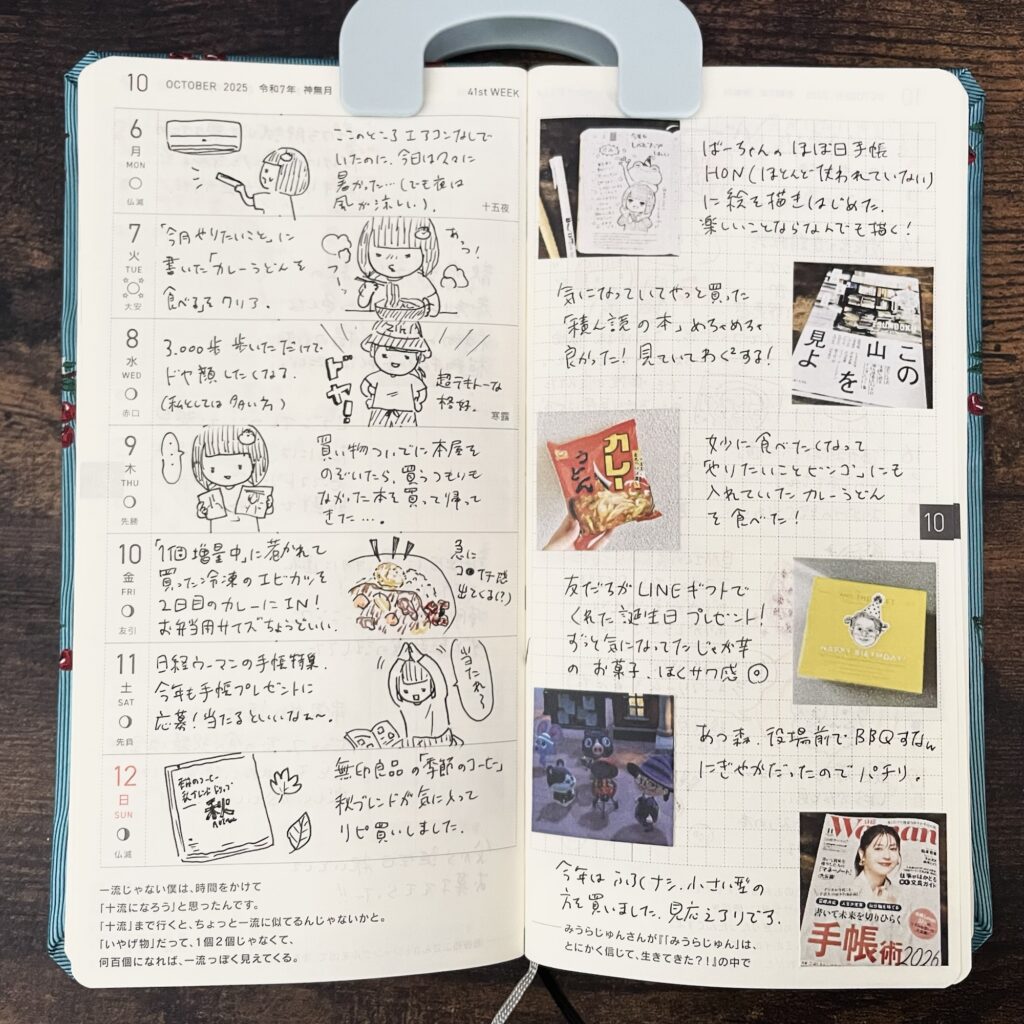 10 OCTOBER 2025 令和7年 神無月
41st WEEK
6
月
MON
仏滅
ここのところ エアコンなしで
いたのに、今日は久々に
暑かった…(でも夜は
風が涼しい)。
十五夜
7
火
TUE
大安
「今月やりたいこと」に
書いた「カレーうどんを
食べる」を クリア。
あっ!
フーッ
8
水
WED
赤口
3,000歩 歩いただけで
ドヤ顔したくなる
(私としては 多い方)
ドヤ!
超テキトーな
格好。
寒露
9
木
THU
先勝
買い物ついでに本屋を
のぞいたら、買うつもりも
なかった本を買って帰って
きた…。
10
金
FRI
友引
「1個増量中」に惹かれて
買った冷凍のエビカツを
2日目のカレーにIN!
お弁当用サイズちょうどいい。
急に
コ●イチ感
出てくる(?)
11
土
SAT
先負
日経ウーマンの手帳特集。
今年も手帳プレゼントに
応募!当たるといいなぁ〜。
当たれ〜
12
日
SUN
仏滅
秋
無印良品の「季節のコーヒー」
秋ブレンドが気に入って
リピ買いしました。
一流じゃない僕は、時間をかけて
「十流になろう」と思ったんです。
「十流」まで行くと、ちょっと一流に似てるんじゃないかと。
「いやげ物」だって、1個2個じゃなくて、
何百個になれば、一流っぽく見えてくる。
ばーちゃんの ほぼ日手帳
HON(ほとんど使われていない)
に絵を描きはじめた。
楽しいことならなんでも描く!
気になっていてやっと買った
「積ん読の本」めちゃめちゃ
良かった!見ていてわく²する!
この
山を
見よ
妙に食べたくなって
「やりたいことビンゴ」にも
入れていた カレーうどん
を食べた!
カレー
うどん
10
友だちが LINEギフトで
くれた誕生日プレゼント!
ずっと気になってたじゃが芋
の お菓子。ほくサク感◎
HAPPY BIRTHDAY!
あつ森。役場前で BBQすなん
にぎやかだったので パチリ。
今年は ふろくナシ、小さい型の
方を買いました。見応えアリです。
Woman
書いて未来を切りひらく
手帳術2026
みうらじゅんさんが『「みうらじゅん」は、
とにかく信じて、生きてきた?!』の中で